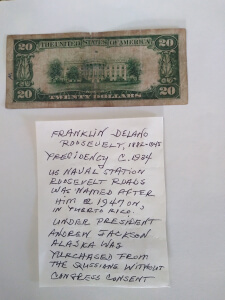 20 THE UNITED STATES OF AMERICA 20
20 TWENTY DOLLARS 20
FRANKLIN DELANO
ROOSEVELT, 1882-1945
PRESIDENCY C. 1934
US NAVAL STATION
ROOSEVELT ROADS
WAS NAMED AFTER
HIM @ 1947 ON
IN PUERTO RICO.
UNDER PRESIDENT
ANDREW JACKSON
ALASKA WAS
PURCHASED FROM
THE RUSSIONS WITHOUT
CONGRESS CONSENT